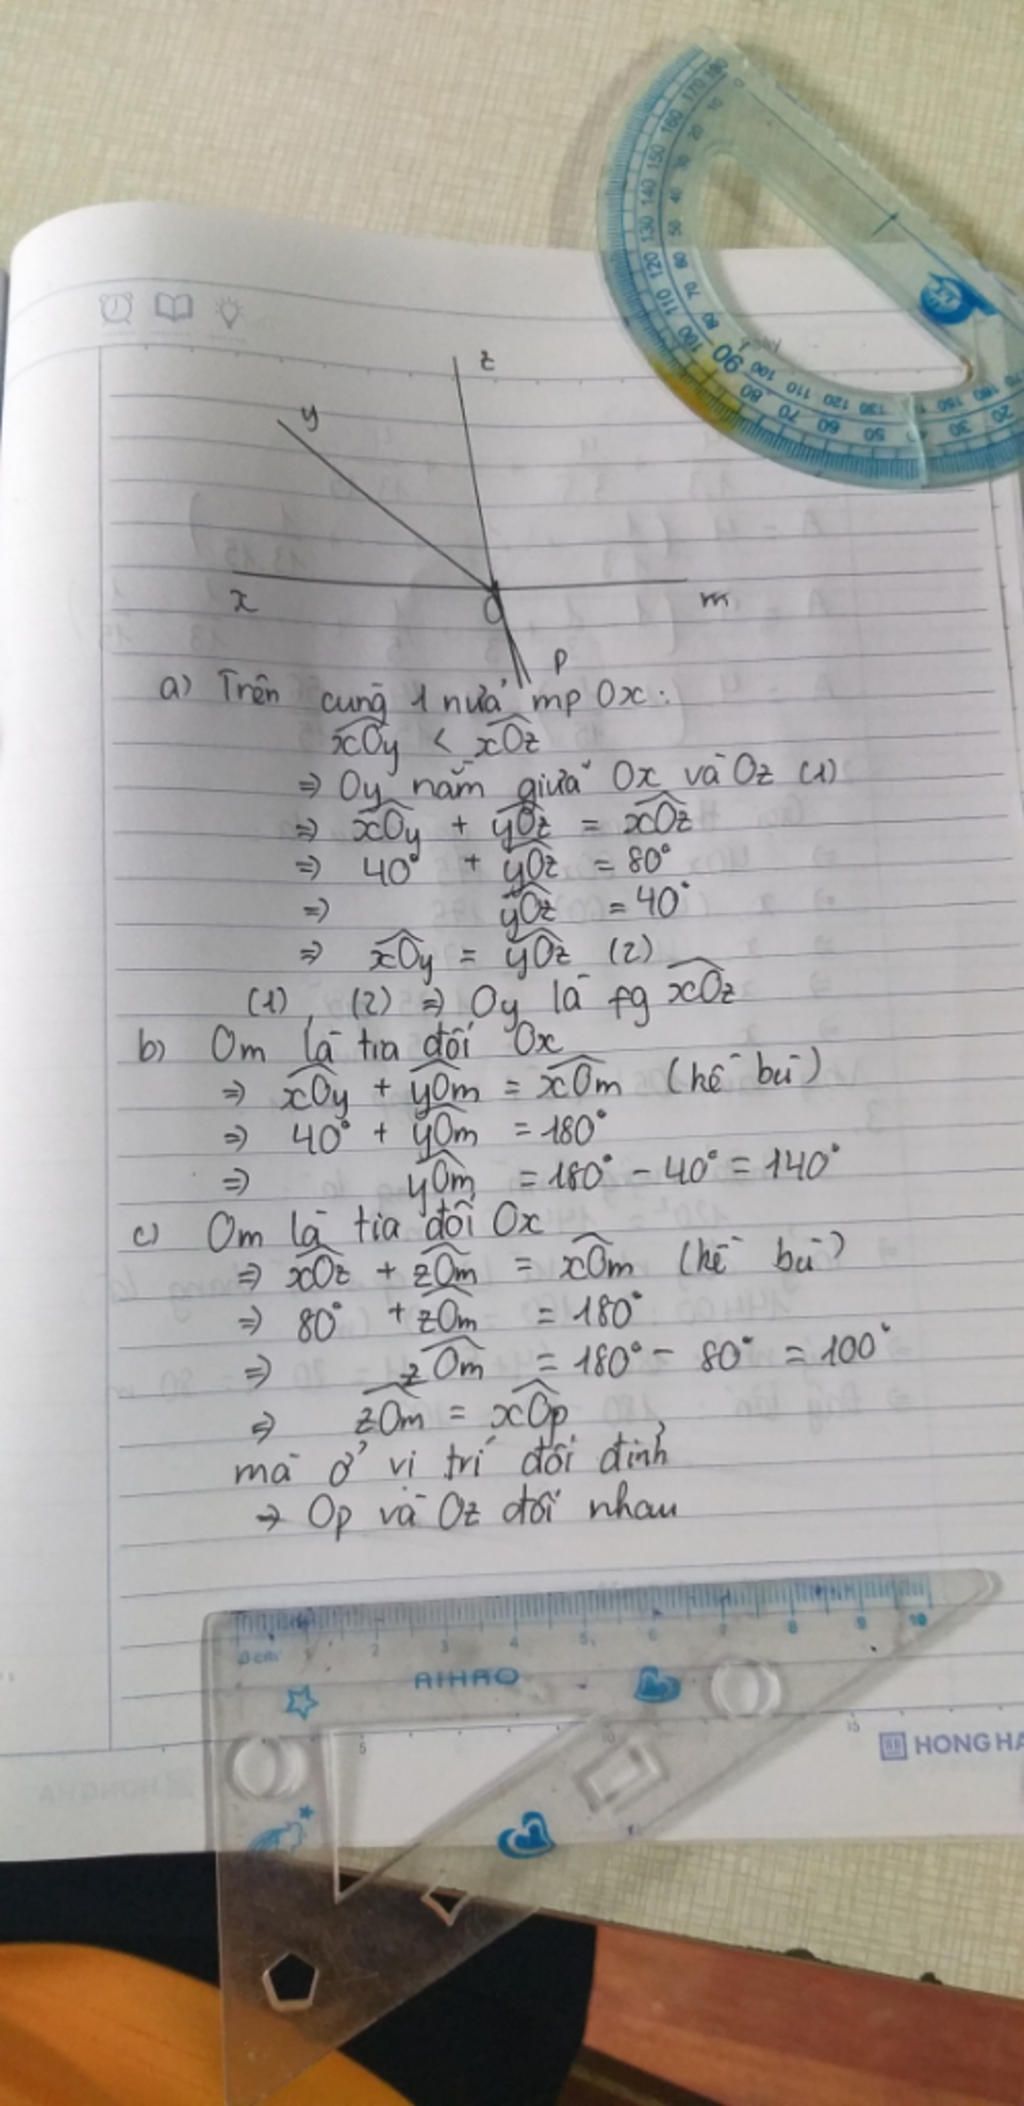 z
y
x
O
m
p
a) Trên cùng 1 nửa mp Ox:
xOy < xOz
⇒ Oy nằm giữa Ox và Oz (1)
⇒ xOy + yOz = xOz
⇒ 40° + yOz = 80°
⇒ yOz = 40°
⇒ xOy = yOz (2)
(1), (2) ⇒ Oy là fg xOz
b) Om là tia đối Ox
⇒ xOy + yOm = xOm (kề bù)
⇒ 40° + yOm = 180°
⇒ yOm = 180° - 40° = 140°
c) Om là tia đối Ox
⇒ xOz + zOm = xOm (kề bù)
⇒ 80° + zOm = 180°
⇒ zOm = 180° - 80° = 100°
⇒ zOm = xOp
mà ở vị trí đối đỉnh
⇒ Op và Oz đối nhau
0cm 1 2 3 4 5 6 7 8 9 10
AIHAO
5 10 15
HONG HA